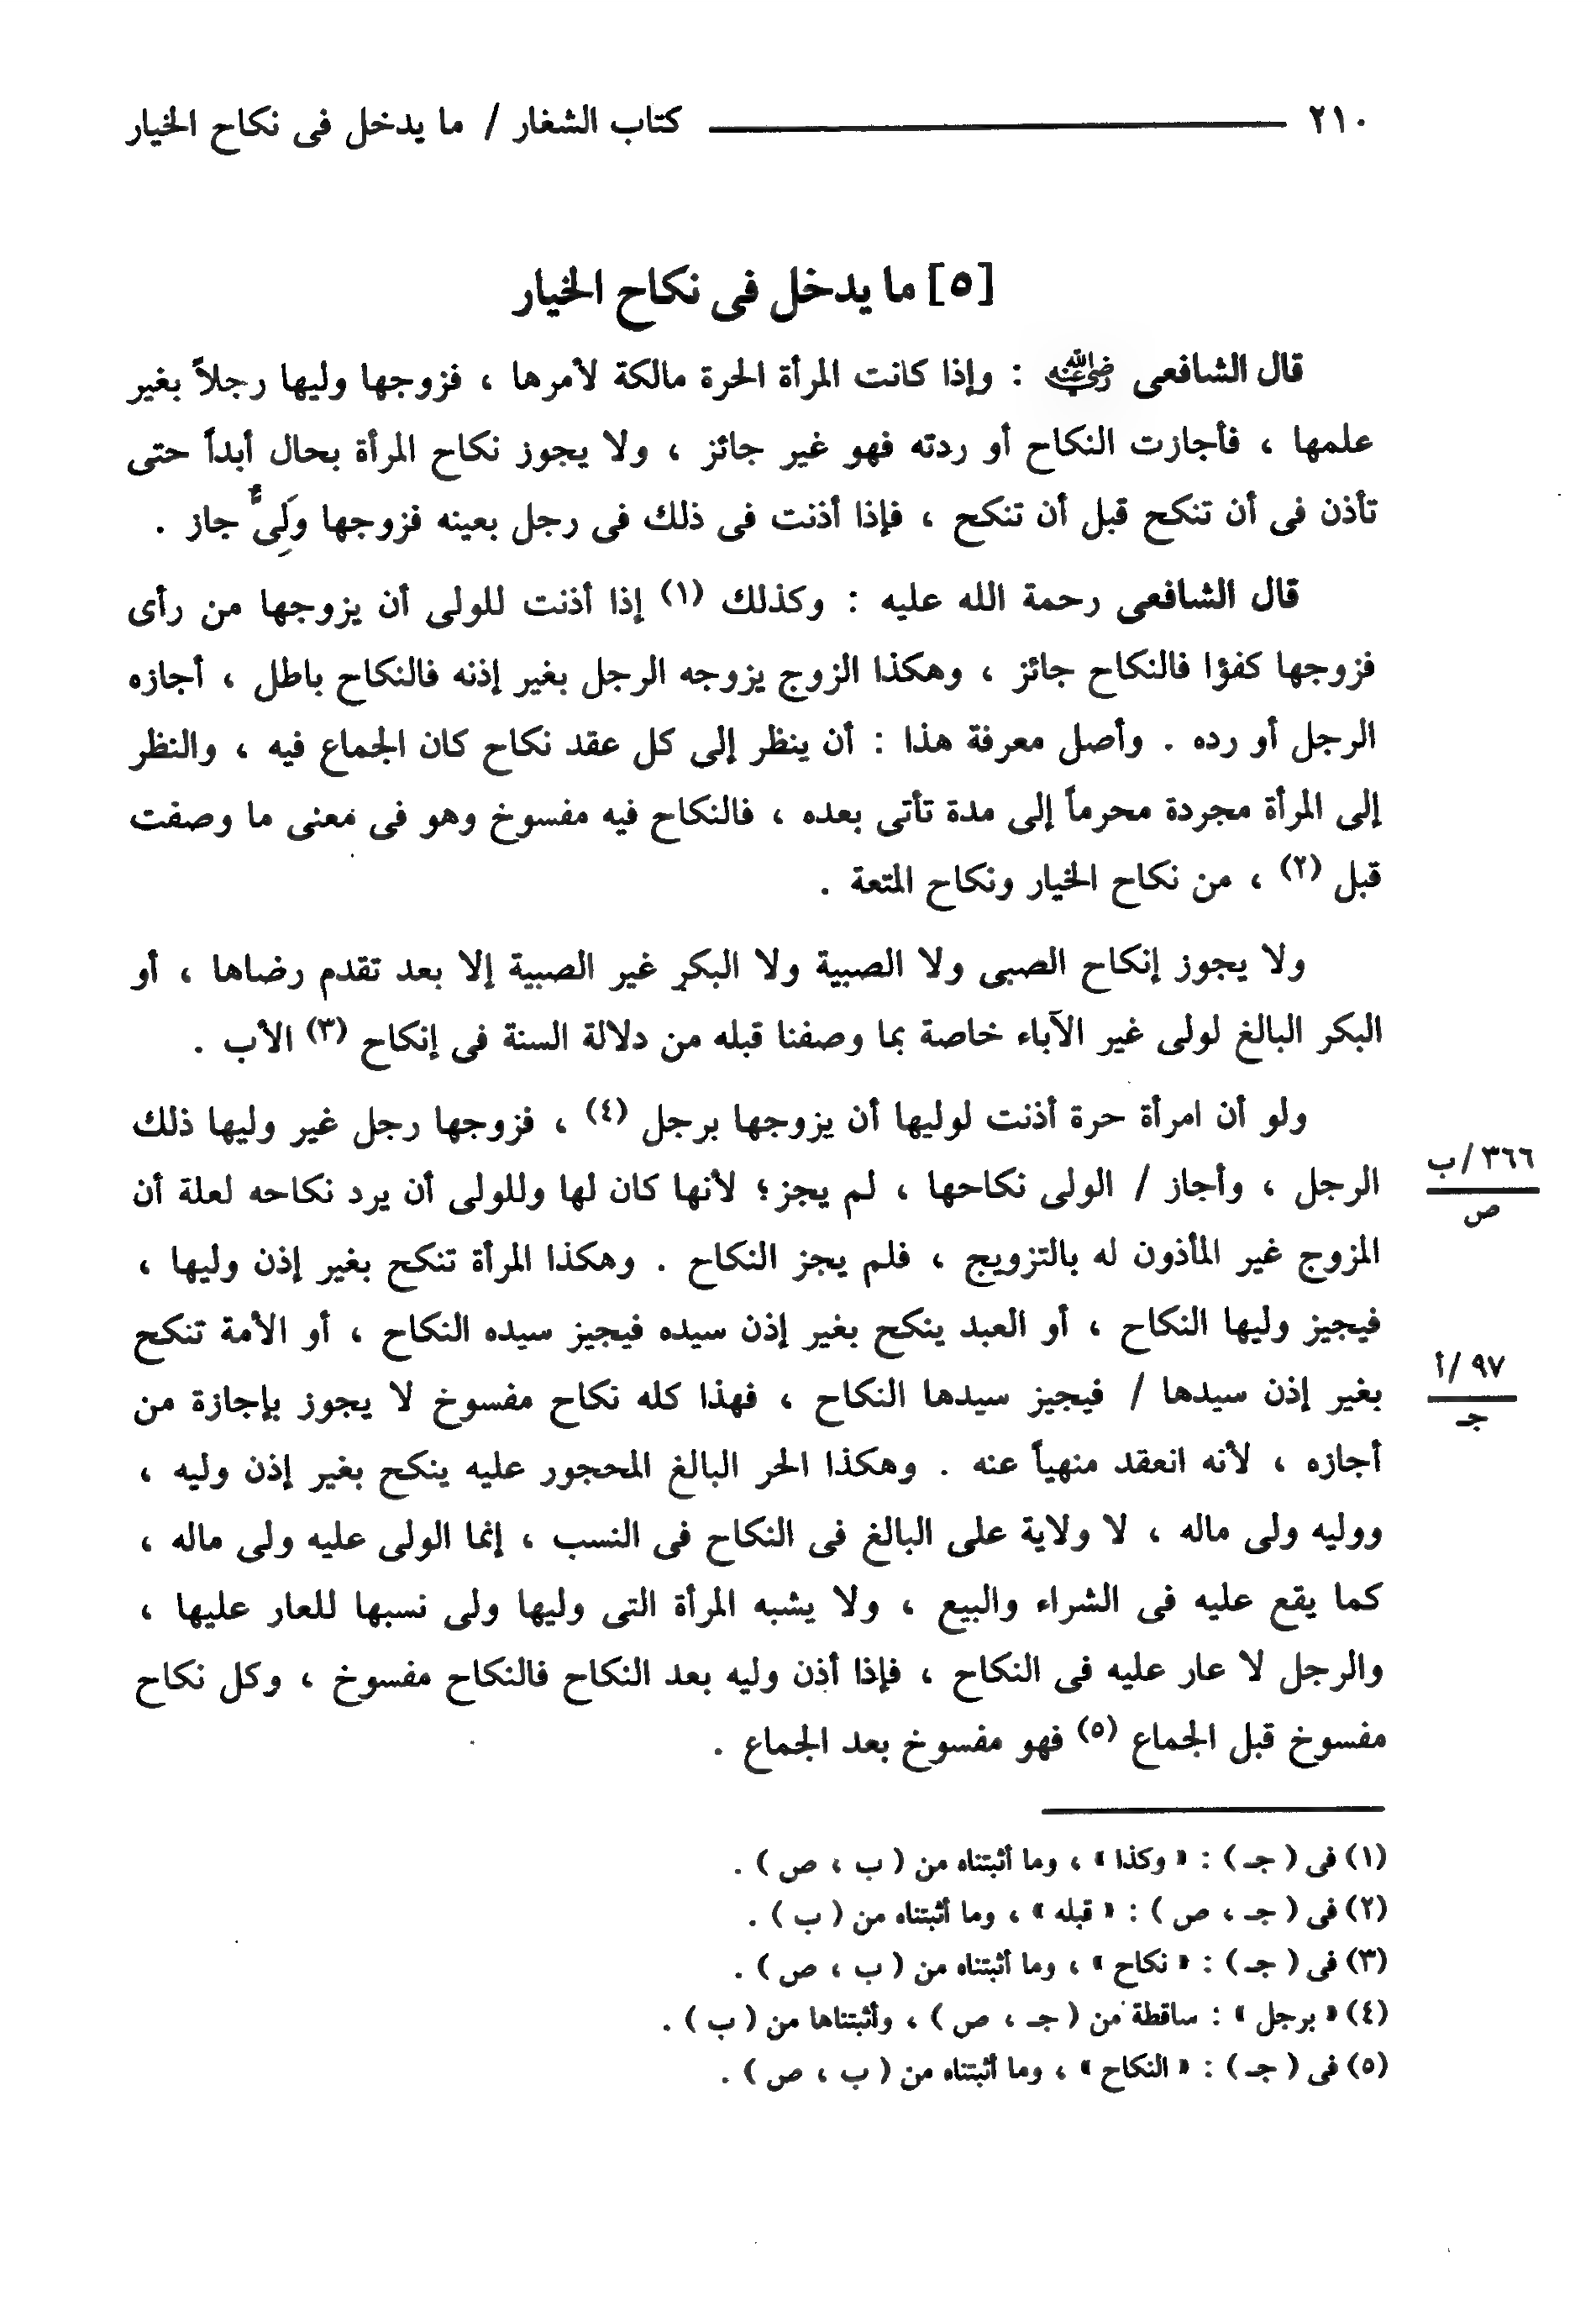 ٢١٠ كتاب الشغار / ما يدخل فى نكاح الخيار
[٥] ما يدخل فى نكاح الخيار
قال الشافعى رضي الله عنه : وإذا كانت المرأة الحرة مالكة لأمرها ، فزوجها وليها رجلاً بغير
علمها ، فأجازت النكاح أو ردته فهو غير جائز ، ولا يجوز نكاح المرأة بحال أبداً حتى
تأذن فى أن تنكح قبل أن تنكح ، فإذا أذنت فى ذلك فى رجل بعينه فزوجها وَلِىٌّ جاز .
قال الشافعى رحمة الله عليه : وكذلك (١) إذا أذنت للولى أن يزوجها من رأى
فزوجها كفؤا فالنكاح جائز ، وهكذا الزوج يزوجه الرجل بغير إذنه فالنكاح باطل ، أجازه
الرجل أو رده . وأصل معرفة هذا : أن ينظر إلى كل عقد نكاح كان الجماع فيه ، والنظر
إلى المرأة مجردة محرماً إلى مدة تأتى بعده ، فالنكاح فيه مفسوخ وهو فى معنى ما وصفت
قبل (٢) ، من نكاح الخيار ونكاح المتعة .
ولا يجوز إنكاح الصبى ولا الصبية ولا البكر غير الصبية إلا بعد تقدم رضاها ، أو
البكر البالغ لولى غير الآباء خاصة بما وصفنا قبله من دلالة السنة فى إنكاح (٣) الأب .
ولو أن امرأة حرة أذنت لوليها أن يزوجها برجل (٤) ، فزوجها رجل غير وليها ذلك
الرجل ، وأجاز / الولى نكاحها ، لم يجز ؛ لأنها كان لها وللولى أن يرد نكاحه لعلة أن
٣٦٦ /ب
ص
المزوج غير المأذون له بالتزويج ، فلم يجز النكاح . وهكذا المرأة تنكح بغير إذن وليها ،
فيجيز وليها النكاح ، أو العبد ينكح بغير إذن سيده فيجيز سيده النكاح ، أو الأمة تنكح
بغير إذن سيدها / فيجيز سيدها النكاح ، فهذا كله نكاح مفسوخ لا يجوز بإجازة من
٩٧ /أ
جـ
أجازه ، لأنه انعقد منهياً عنه . وهكذا الحر البالغ المحجور عليه ينكح بغير إذن وليه ،
ووليه ولى ماله ، لا ولاية على البالغ فى النكاح فى النسب ، إنما الولى عليه ولى ماله ،
كما يقع عليه فى الشراء والبيع ، ولا يشبه المرأة التى وليها ولى نسبها للعار عليها ،
والرجل لا عار عليه فى النكاح ، فإذا أذن وليه بعد النكاح فالنكاح مفسوخ ، وكل نكاح
مفسوخ قبل الجماع (٥) فهو مفسوخ بعد الجماع .
(١) فى ( جـ ) : « وكذا » ، وما أثبتناه من ( ب ، ص ) .
(٢) فى ( جـ ، ص ) : « قبله » ، وما أثبتناه من ( ب ) .
(٣) فى ( جـ ) : « نكاح » ، وما أثبتناه من ( ب ، ص ) .
(٤) « برجل » : ساقطة من ( جـ ، ص ) ، وأثبتناها من ( ب ) .
(٥) فى ( جـ ) : « النكاح » ، وما أثبتناه من ( ب ، ص ) .